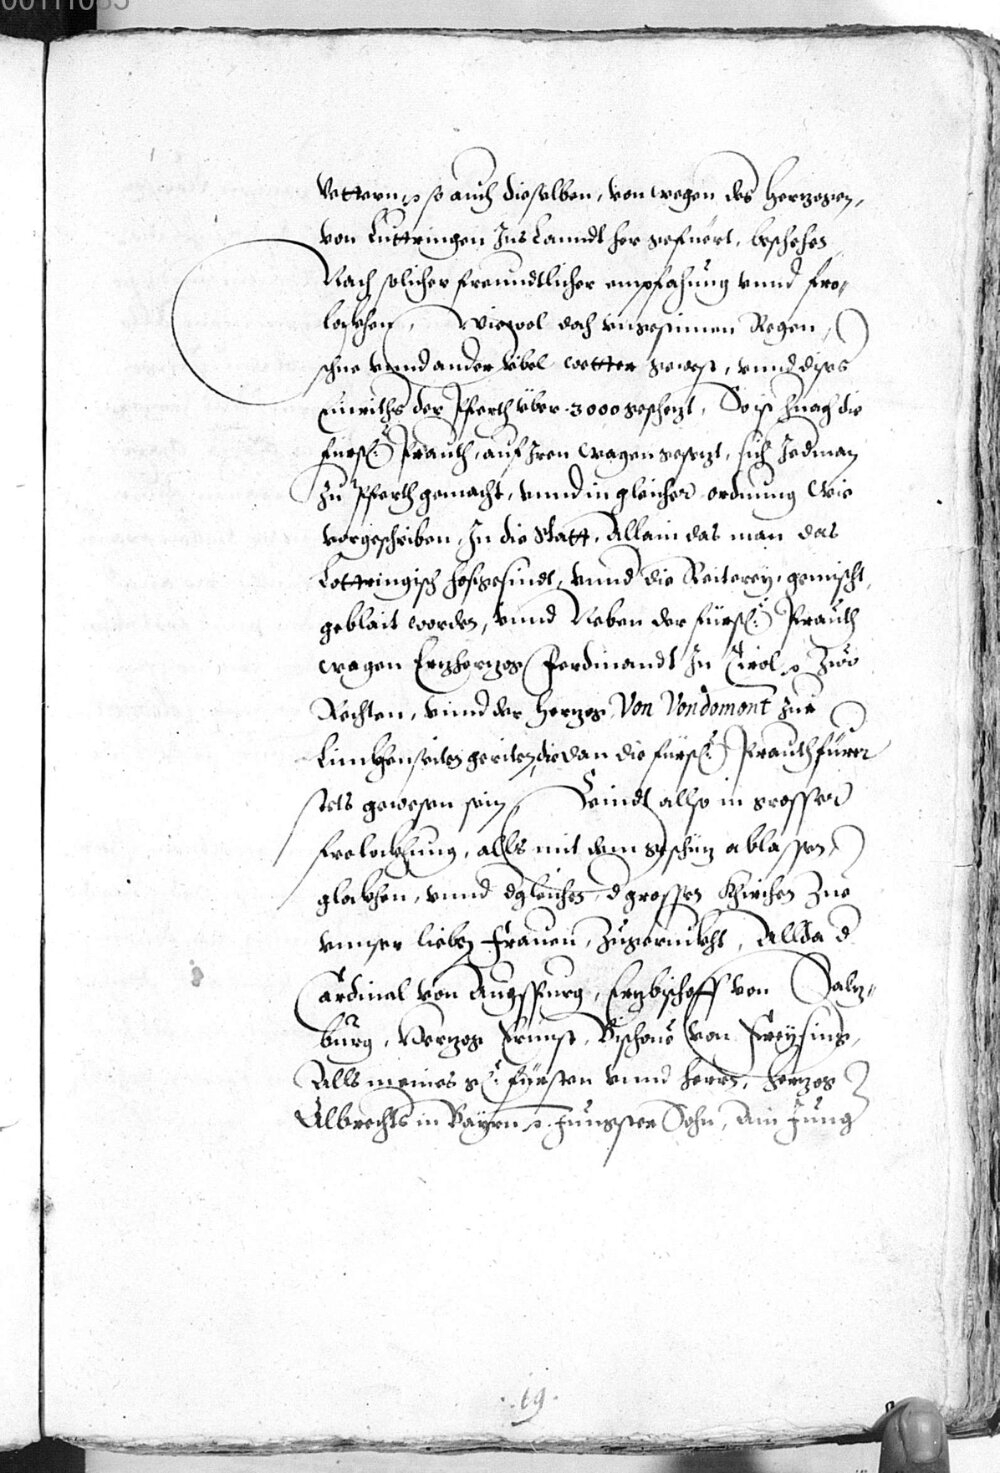 00111035
Vettern, so auch dieselben, von wegen des Herzogen,
von Luttringen Ins Lanndt her gefuert, beschehen
Nach solicher freundtlicher empfahung vnnd fro-
lockhen, Wiewol doch vngestimen Regen,
schne vnnd ander vbel wetter gewest, vnnd dises
einriths der Pferth vber 3000 geschezt, So ist hnach die
fürstl: Prauth, auf Iren wagen gesezt, sich Jedman
zu Pferth gemacht, vnnd in gleicher ordnung wie
vorgeschriben, In die Statt, Allain das man das
Lottringisch hofgesindt, vnnd die Reiterey, gemischt,
geblait worden, vnnd Neben der fürstl: Prauth
wagen Erzherzog Ferdinandt Zu Tirol, Zur
Rechten, vnnd der Herzog Von Vondomont zur
Linckhen seiten geriten, die dan die fürstl: Prauth fürer
stets gewesen sein, Seindt allso in grosser
frolockhung, alls mit dem geschüz ablassen,
glockhen, vnnd dgleichen, d grossen Khirchen Zue
vnnser lieben Frauen, zugeruckht, Allda d
Cardinal von Augspurg, Erzbischoff von Salz-
burg, Herzog Ernnst, Bischoue von Freysing,
Alls meines g: fürsten vnnd herrn, herzog
Albrechts in Bayrn, Jüngster Sohn, Ain Jung
19